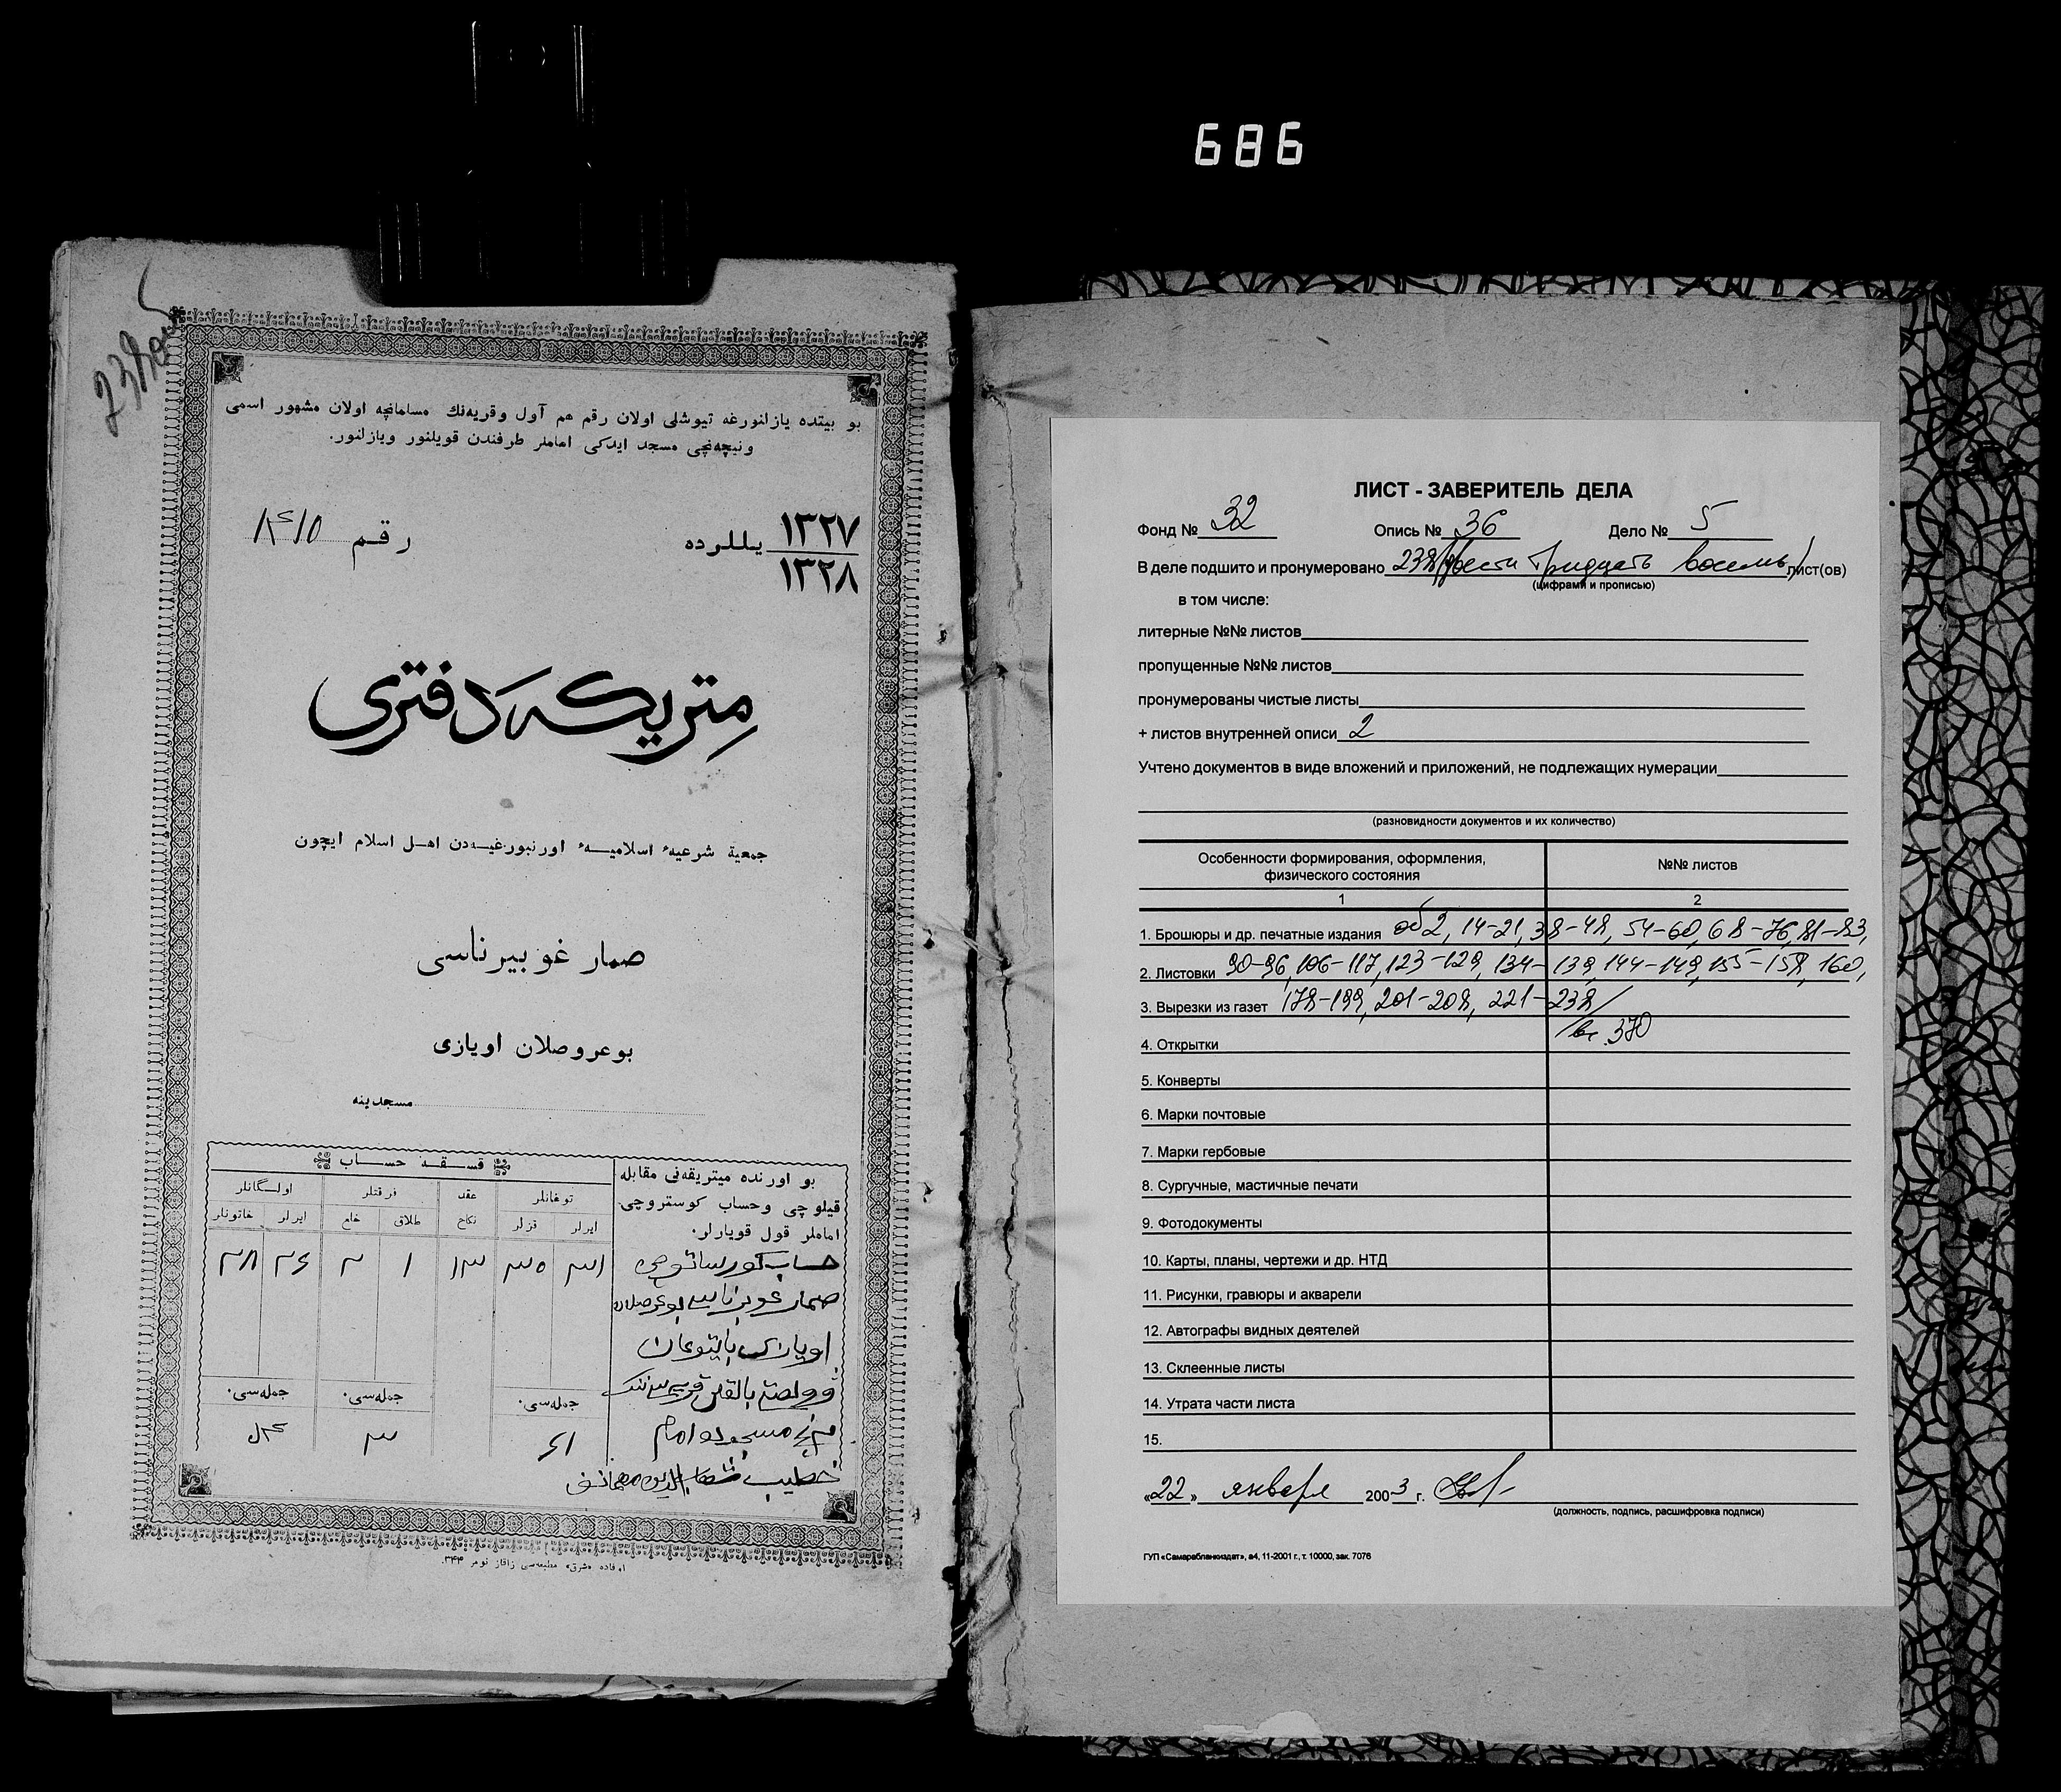 686
238об
بو بیتده یازلنورغه تیوشلی اولان رقم هم آول وقریه‌نك مسلمانچه اولان مشهور اسمی
ونیچه‌نچی مسجد ایدکی اماملر طرفندن قویلنور ویازلنور.
١٣٢٧
١٣٢٨ یللرده
رقم
متریكه دفتری
جمعیة شرعیهٔ اسلامیـهٔ اورنبورغیـه‌دن اهـل اسلام ایچون
صمار غوبیرناسی
بوعروصلان اویازی
مسجدینه
قسـقـه حسـاب
اولـگانلر فرقتلر عقد توغانلر
خاتونلر ایرلر خلع طلاق نکاح قزلر ایرلر
٢٨ ٢٦ ٢ ١ ١٣ ٣٠ ٣١
جمله‌سی. جمله‌سی. جمله‌سی.
٣ ٦١
بو اورنده میتریقه‌نی مقابله
قیلوچی وحساب کوستروچی
اماملر قول قویارلر.
صمار غوبرناسی بوعروصلان
ЛИСТ - ЗАВЕРИТЕЛЬ ДЕЛА
Фонд № 32 Опись № 36 Дело № 5
В деле подшито и пронумеровано 238 (двести тридцать восемь) лист(ов)
(цифрами и прописью)
в том числе:
литерные №№ листов
пропущенные №№ листов
пронумерованы чистые листы
+ листов внутренней описи 2
Учтено документов в виде вложений и приложений, не подлежащих нумерации
(разновидности документов и их количество)
Особенности формирования, оформления, физического состояния №№ листов
1 2
1. Брошюры и др. печатные издания об2, 14-21, 38-48, 54-60, 68-76, 81-83,
2. Листовки 90-96, 106-117, 123-129, 134-139, 144-149, 155-158, 160,
3. Вырезки из газет 178-199, 201-208, 221-238/
4. Открытки
5. Конверты
6. Марки почтовые
7. Марки гербовые
8. Сургучные, мастичные печати
9. Фотодокументы
10. Карты, планы, чертежи и др. НТД
11. Рисунки, гравюры и акварели
12. Автографы видных деятелей
13. Склеенные листы
14. Утрата части листа
15.
«22» января 2003 г.
(должность, подпись, расшифровка подписи)
ГУП «Самарабланкиздат», а4, 11-2001 г., т. 10000, зак. 7076